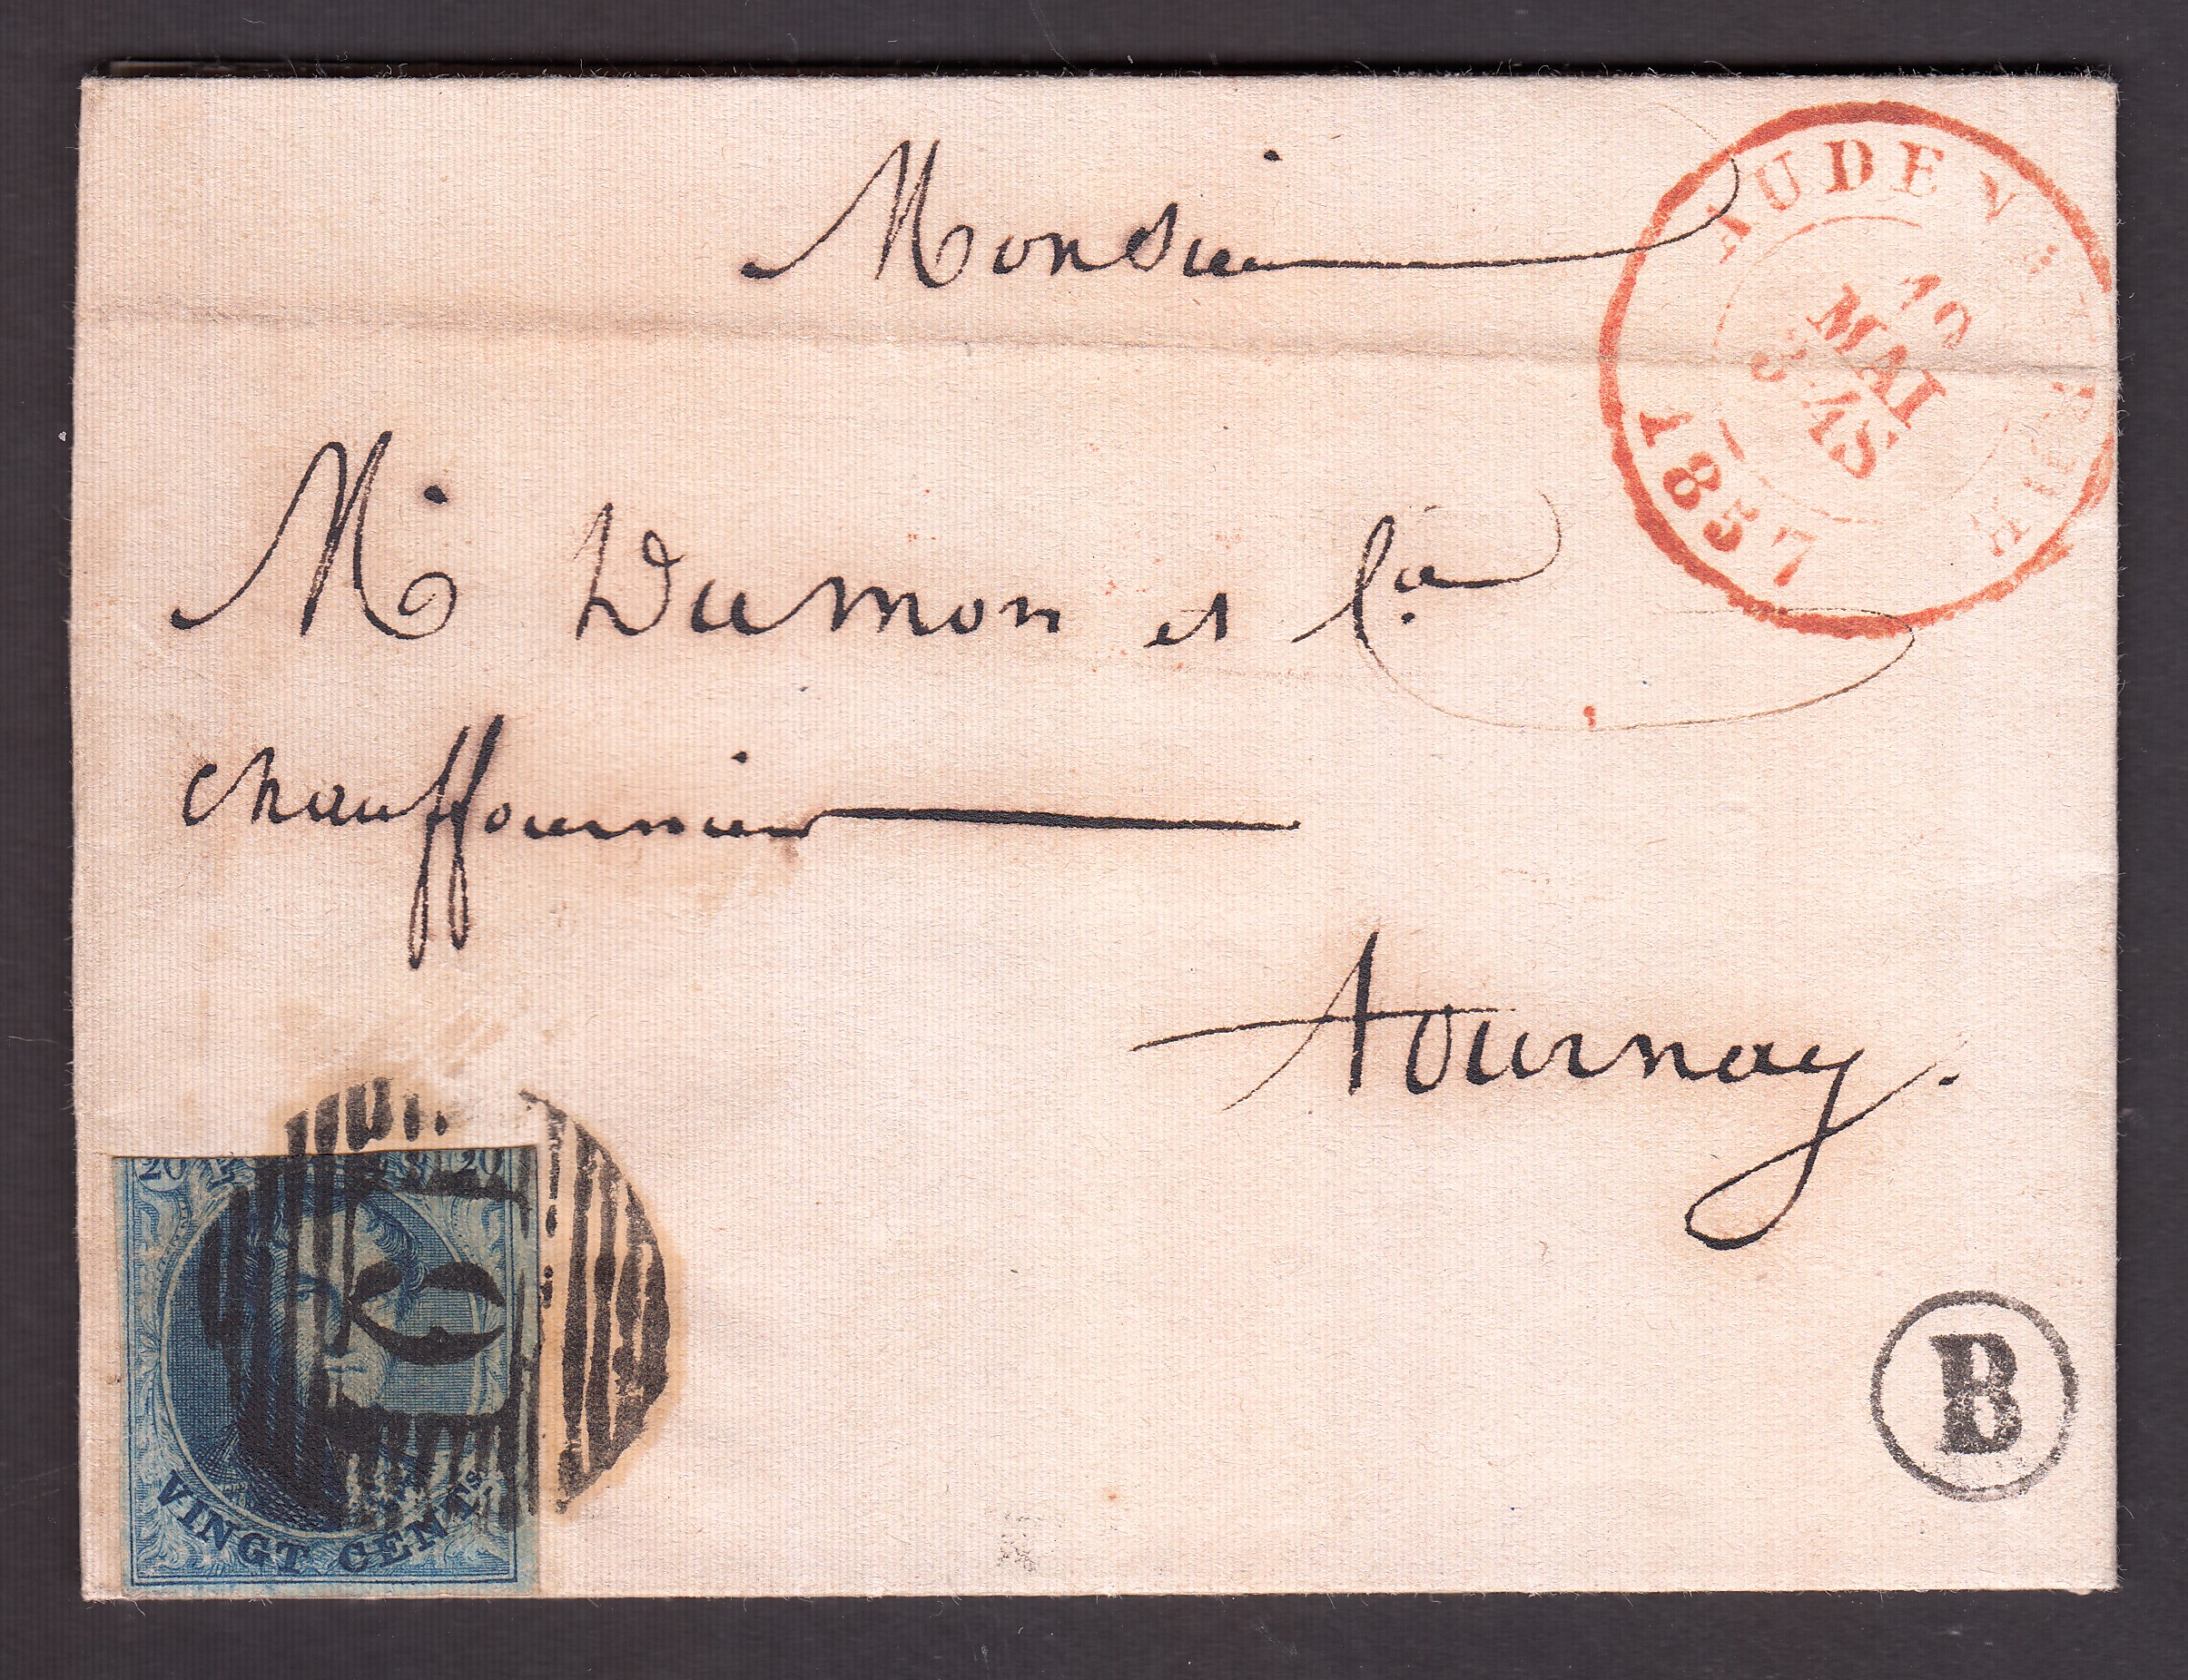 Monsieur
AUDEN
10
MAI
3-4S
1857
Mr Dumon et Cie
chauffournier
Tournay.
20 20
VINGT CENTS
B